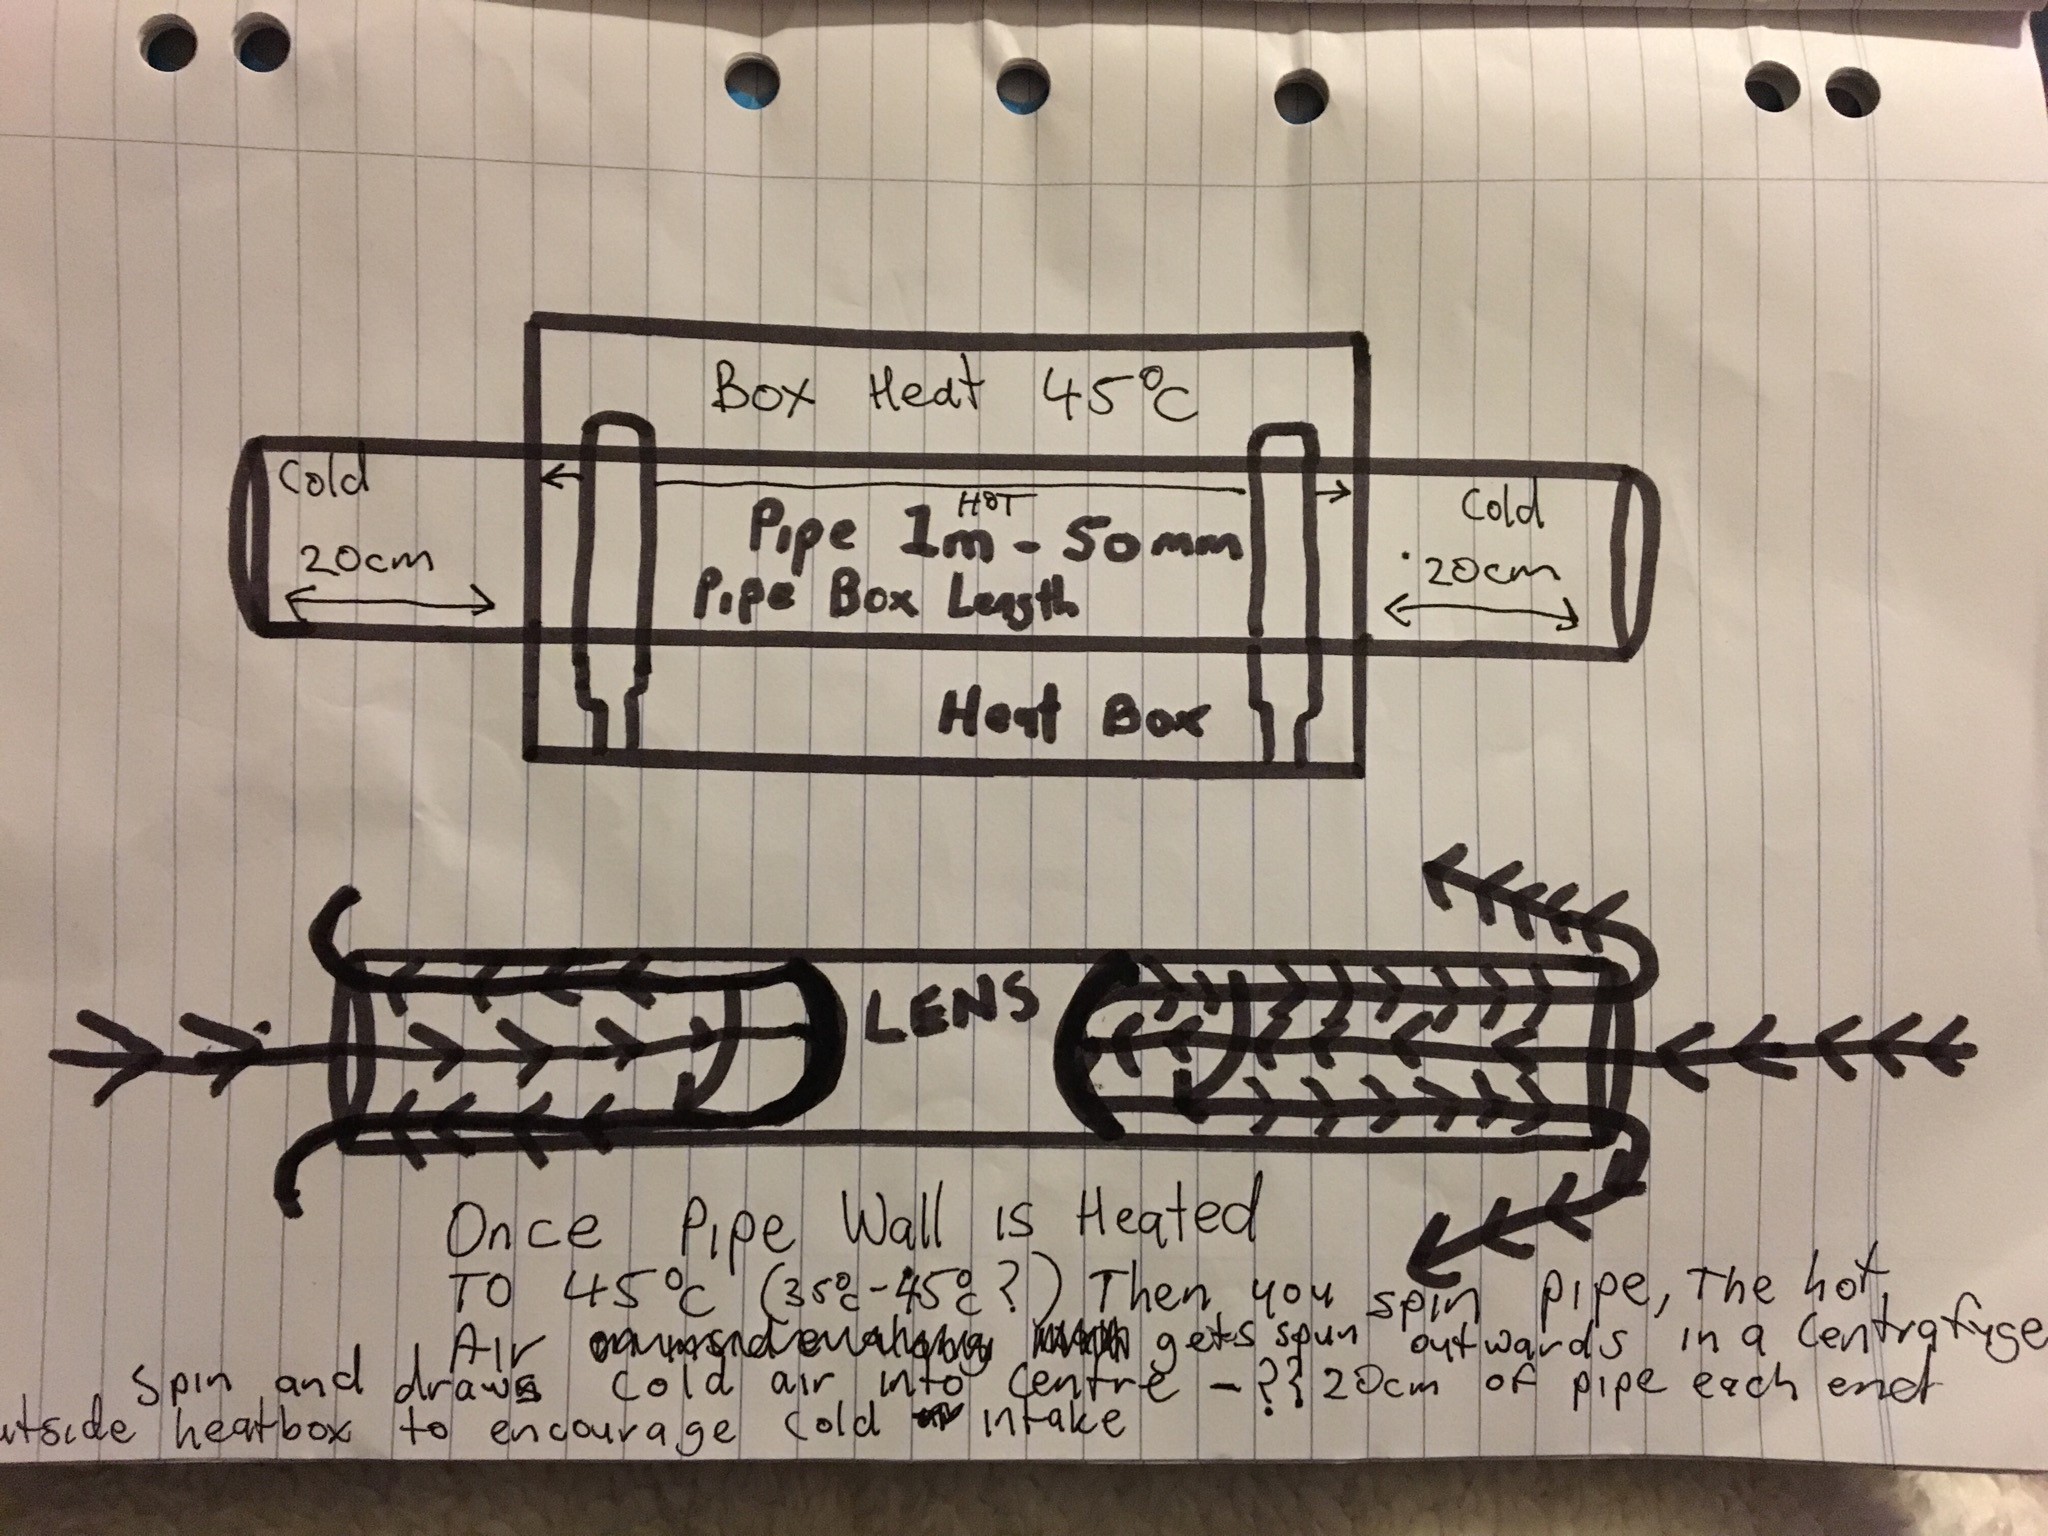 Box Heat 45°C
Cold
20cm
HOT
Pipe 1m - 50mm
Pipe Box Length
Cold
20cm
Heat Box
LENS
Once Pipe Wall is Heated
TO 45°C (35°C-45°C?) Then you spin pipe, The hot
AIR gets spun outwards in a Centrafuge
Spin and draws cold air into Centre - ?} 20cm of pipe each end
utside heatbox to encourage cold intake